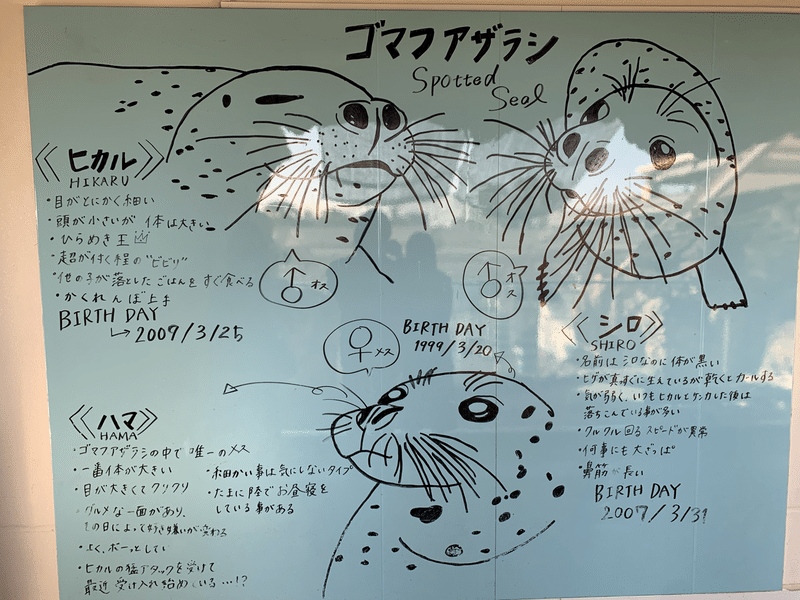 ゴマフアザラシ
Spotted
Seal
《ヒカル》
HIKARU
・目がとにかく細い
・頭が小さいが 体は大きい
・ひらめき王
・超が付く程の"ビビリ"
・他の子が落としたごはんをすぐ食べる
・かくれんぼ上手
BIRTH DAY
→2007/3/25
♂オス
♂オス
♀メス
BIRTH DAY
1999/3/20
《シロ》
SHIRO
・名前はシロなのに体が黒い
・ヒゲが真すぐに生えているが乾くとカールする
・気が弱く、いつもヒカルとケンカした後は
落ちこんでいる事が多い
・クルクル回るスピードが異常
・何事にも大ざっぱ
・鼻筋が長い
BIRTH DAY
2007/3/31
《ハマ》
HAMA
・ゴマフアザラシの中で唯一のメス
・一番体が大きい
・目が大きくてクリクリ
・グルメな一面があり、
その日によって好き嫌いが変わる
・よく、ボーっとしてい
・ヒカルの猛アタックを受けて
最近 受け入れ始めている…!?
・細かい事は気にしないタイプ
・たまに陸でお昼寝を
している事がある